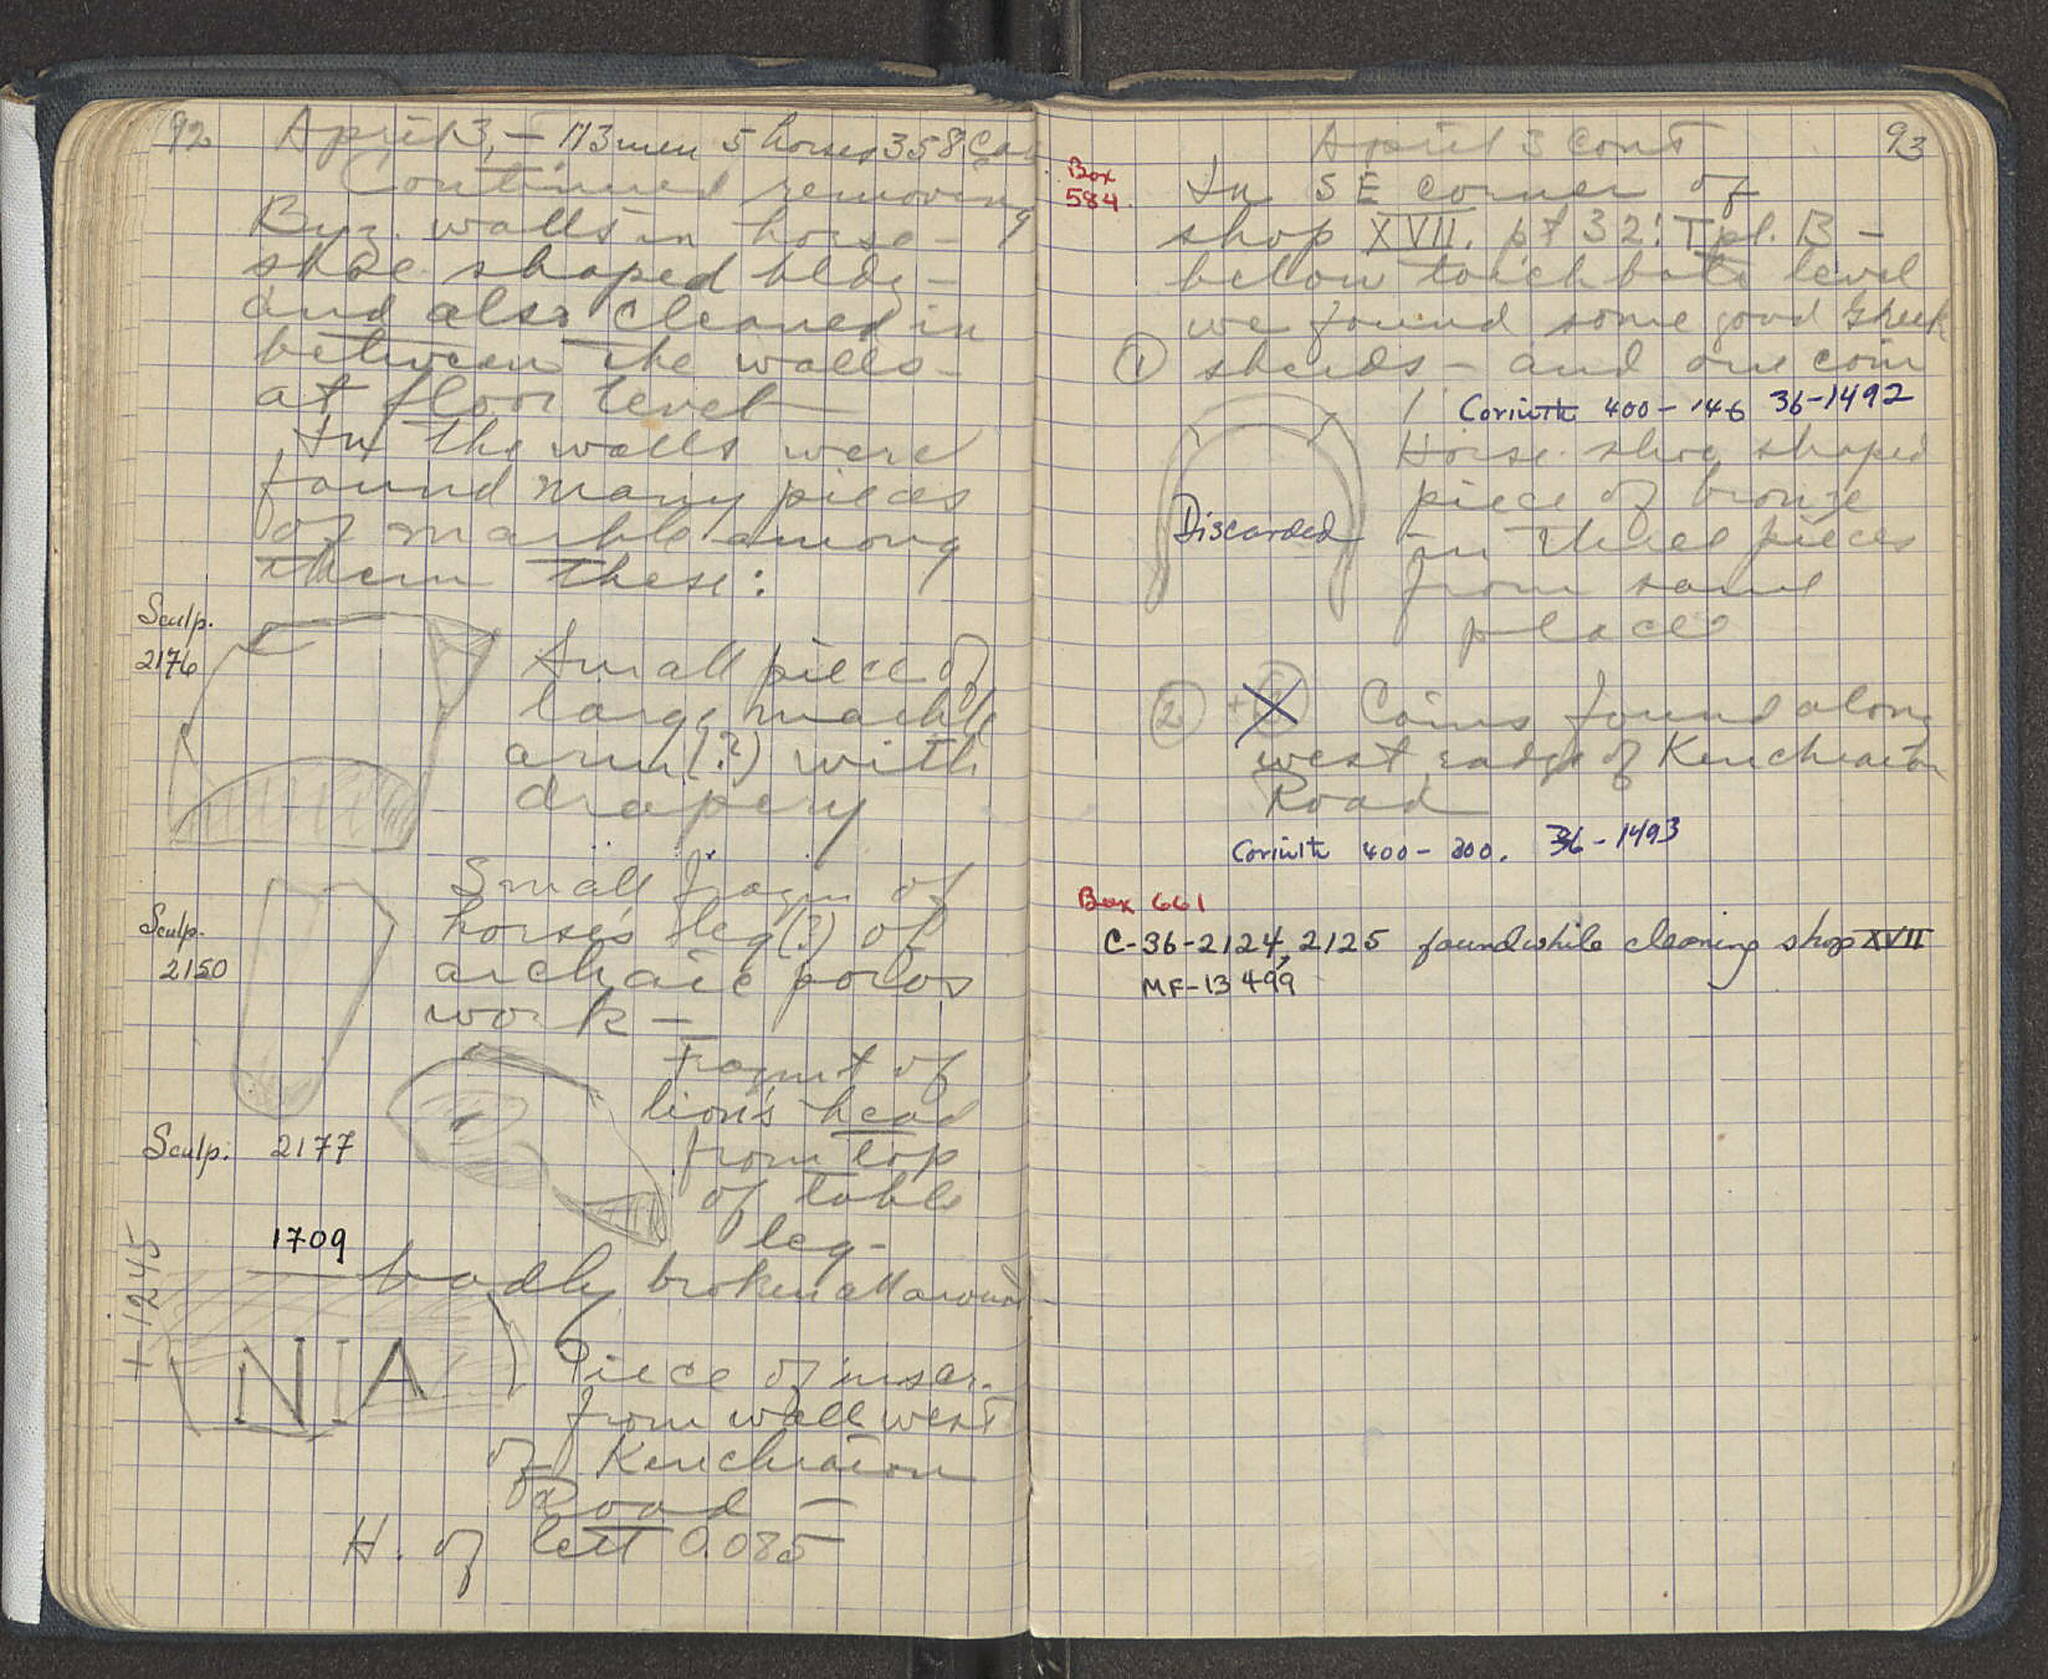 92 April 3, — 113 men 5 horses 358 Car
Continued removing
Byz. walls in horse-
shoe shaped bldg —
and also cleaned in
between the walls —
at floor level
In the walls were
found many pieces
of marble among
them these:
Sculp.
2176
Small piece of
large marble
arm(?) with
drapery
Sculp.
2150
Small fragm of
horse's leg(?) of
archaic poros
work —
Sculp. 2177
Fragmt of
lion's head
from top
of table
leg —
1709
+ 1245
badly broken all around —
NIA
Piece of inscr.
from wall west
of Kenchraion
Road —
H. of lett 0.085
April 3 cont 93
Box
584.
In SE corner of
shop XVII. pt 32: Tpl. B —
below level
we found some good Greek
① sherds — and one coin
1. Corinth 400 – 146 36-1492
Discarded
Horse shoe shaped
piece of bronze
in three pieces
from same
place
② + X Coins found along
west edge of Kenchraion
Road
Corinth 400 – 300. 36-1493
Box 661
C-36-2124, 2125 found while cleaning shop XVII
MF-13499